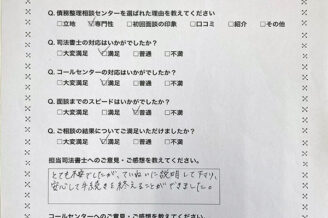 Q. 債務整理相談センターを選ばれた理由を教えてください
□立地 ☑専門性 □初回面談の印象 □口コミ □紹介 □その他
Q. 司法書士の対応はいかがでしたか？
□大変満足 ☑満足 □普通 □不満
Q. コールセンターの対応はいかがでしたか？
□大変満足 ☑満足 □普通 □不満
Q. 面談までのスピードはいかがでしたか？
□大変満足 □満足 ☑普通 □不満
Q. ご相談の結果についてご満足いただけましたか？
□大変満足 ☑満足 □普通 □不満
担当司法書士へのご意見・ご感想を教えてください。
とても不安でしたが、ていねいに説明して下さり、
安心して手続きを終えることができました。
コールセンターへのご意見・ご感想を教えてください。